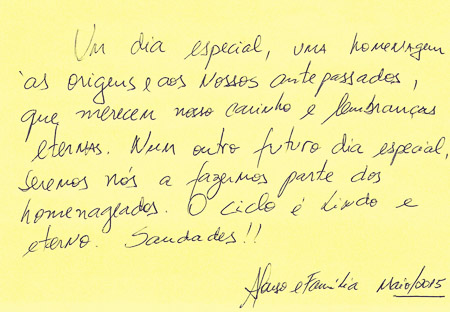 Um dia especial, uma homenagem
às origens e aos nossos antepassados,
que merecem nosso carinho e lembranças
eternas. Num outro futuro dia especial,
seremos nós a fazermos parte dos
homenageados. O ciclo é lindo e
eterno. Saudades!!
Afonso e Família Maio/2015